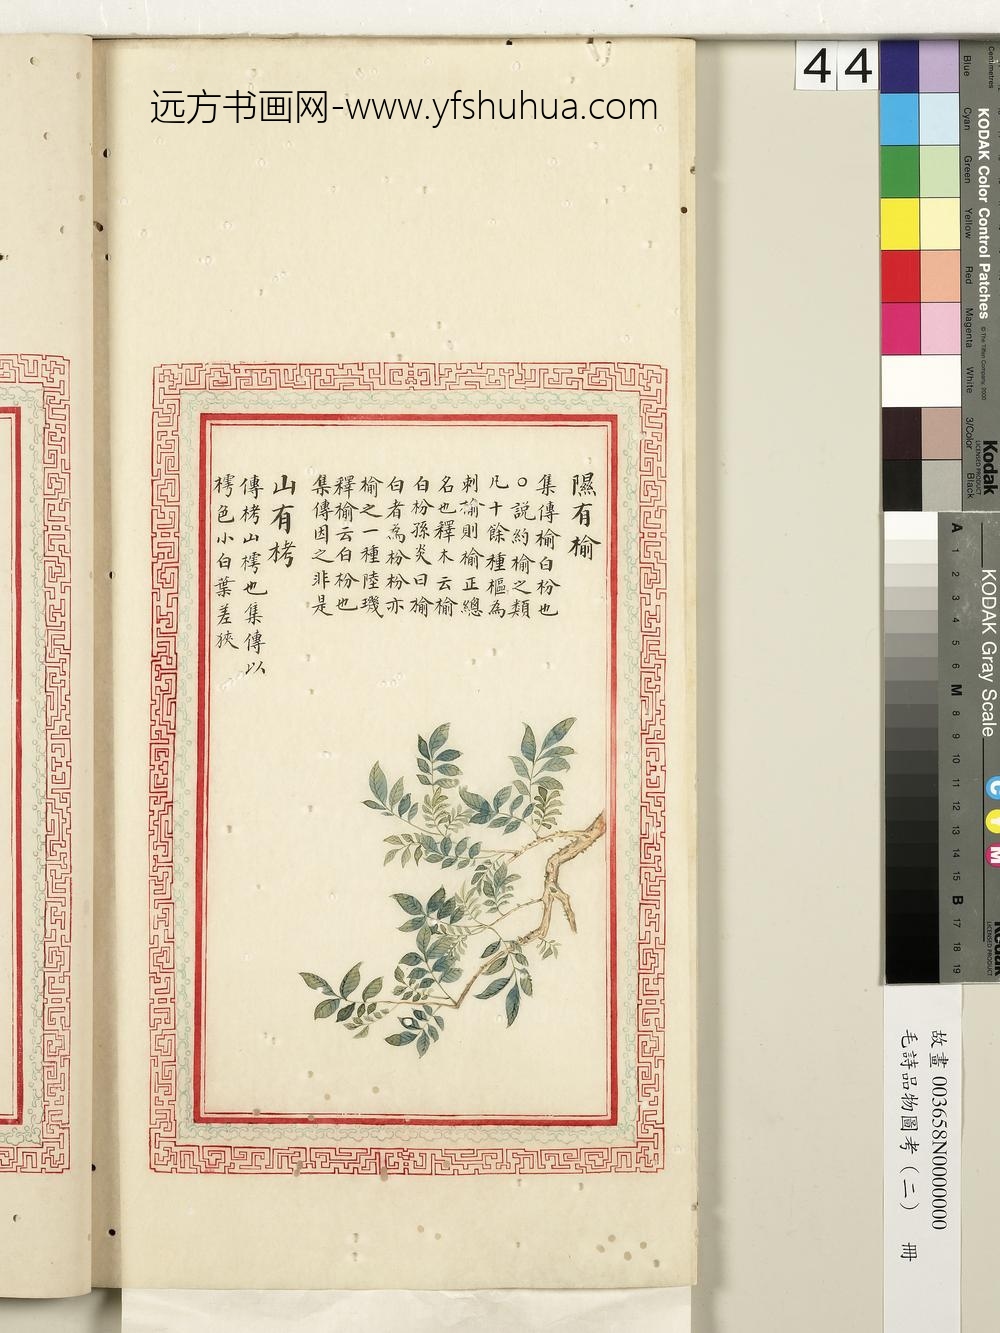 远方书画网-www.yfshuhua.com
44
隰有榆
集傳榆白枌也
○説約榆之類
凡十餘種樞為
刺榆則榆正總
名也釋木云榆
白枌孫炎曰榆
白者為枌枌亦
榆之一種陸璣
釋榆云白枌也
集傳因之非是
山有栲
傳栲山樗也集傳以
樗色小白葉差狹
KODAK Color Control Patches
© The Tiffen Company, 2000
Kodak
LICENSED PRODUCT
Centimetres
Blue
Cyan
Green
Yellow
Red
Magenta
White
3/Color
Black
KODAK Gray Scale
A 1 2 3 4 5 6 M 8 9 10 11 12 13 14 15 B 17 18 19
C
Y
M
Kodak
LICENSED PRODUCT
故畫 003658N0000000
毛詩品物圖考（二） 冊